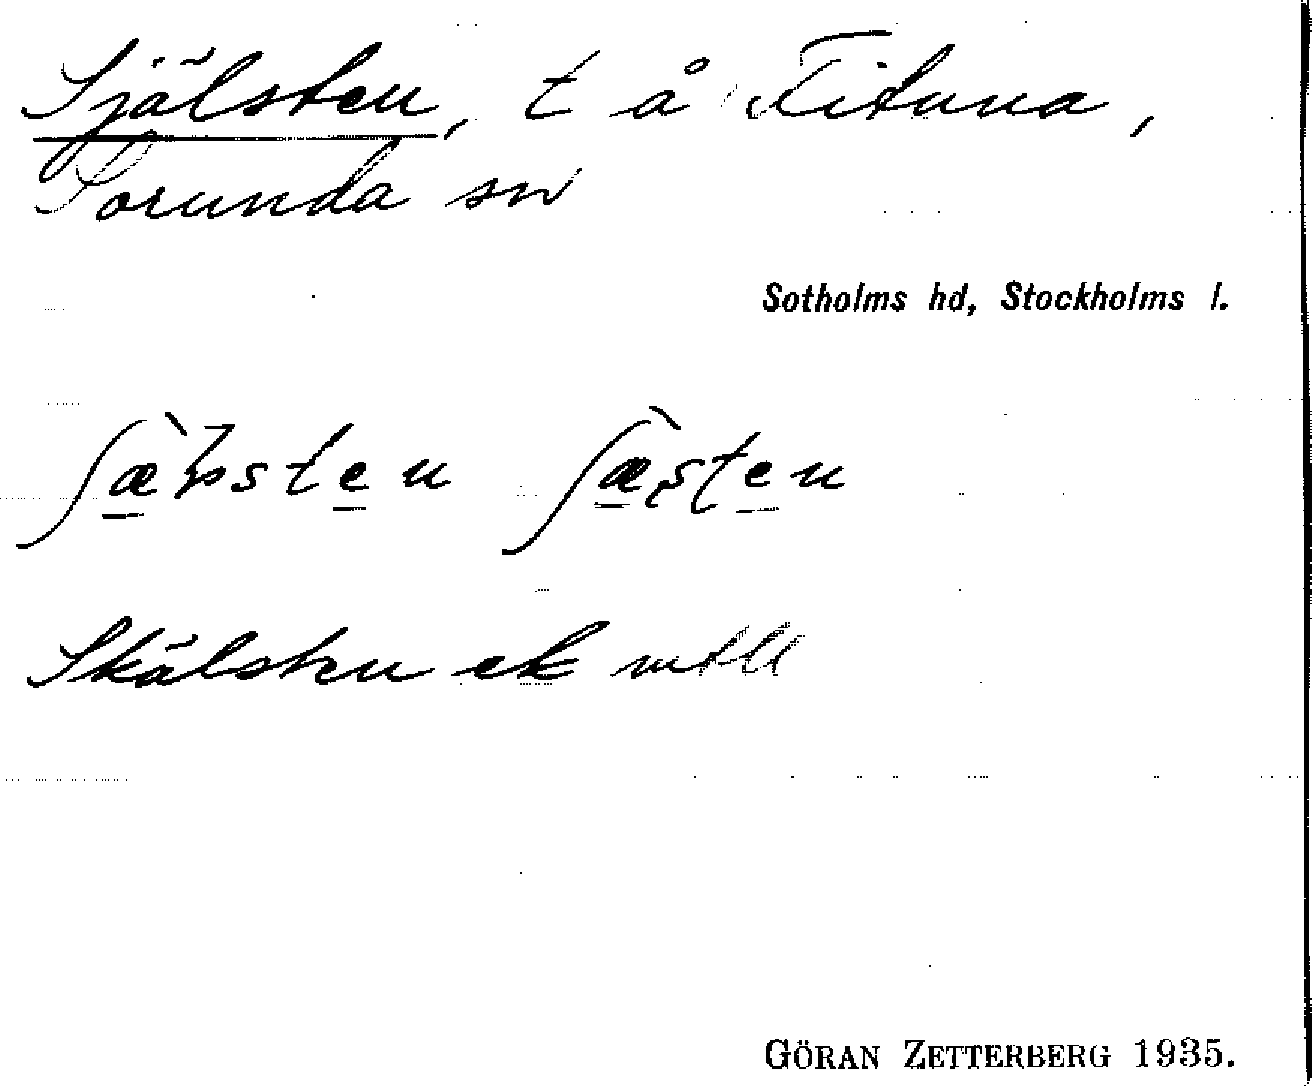 Själsten, t å Fituna,
Sorunda sn
Sotholms hd, Stockholms l.
Skälsten ek
GÖRAN ZETTERBERG 1935.